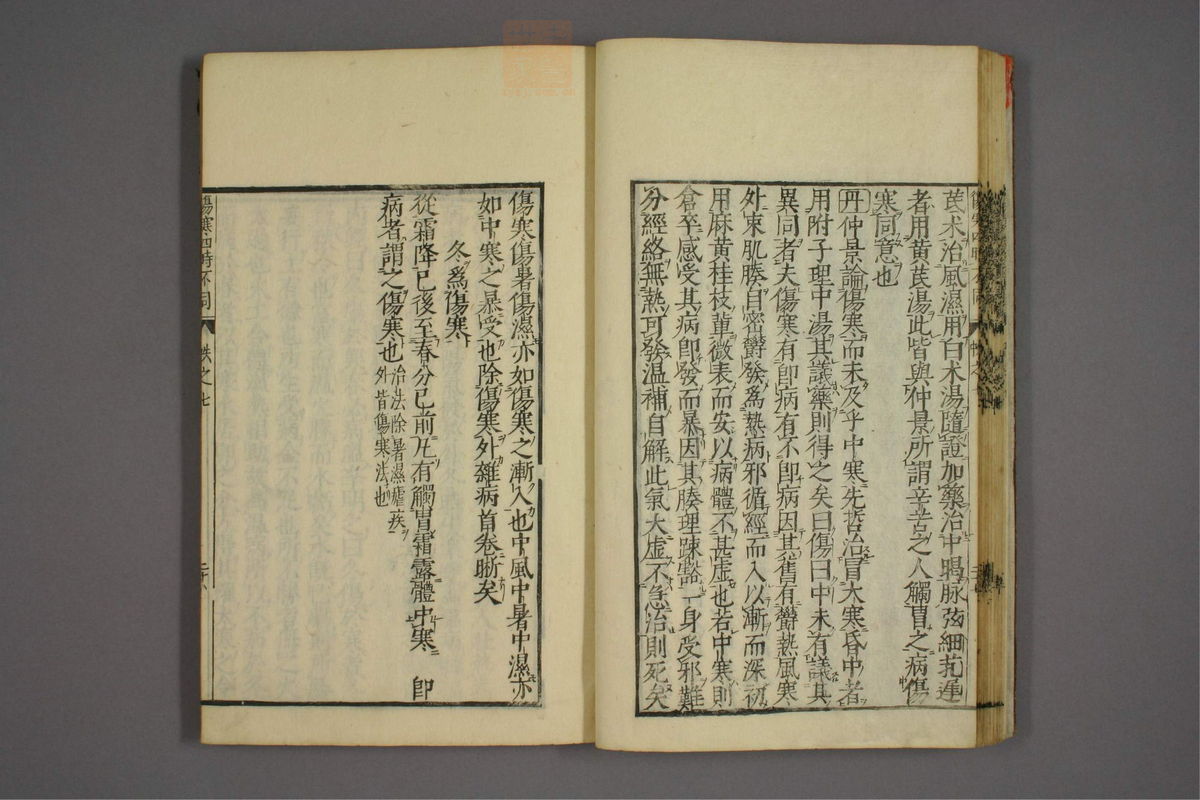 芪术治風濕用白术湯隨證加藥治中暍脉弦細芤遲
者用黄芪湯此皆與仲景所謂辛苦之人觸冒之病傷
寒同意也
丹仲景論傷寒而未及乎中寒先哲治冒大寒昏中者
用附子理中湯其議藥則得之矣曰傷曰中未有議其
異同者夫傷寒有即病有不即病因其舊有欝熱風寒
外束肌腠自密欝發爲熱病邪循經而入以漸而深初
用麻黄桂枝軰微表而安以病體不甚虚也若中寒則
倉卒感受其病即發而暴因其腠理踈豁一身受邪難
分經絡無熱可發温補自解此氣大虚不急治則死矣
傷寒傷暑傷濕亦如傷寒之漸入也中風中暑中濕亦
如中寒之暴受也除傷寒外雜病首卷晰矣
冬爲傷寒
從霜降已後至春分已前凢有觸冒霜露體中寒 即
病者謂之傷寒也治法除暑濕瘧疾
外皆傷寒法也
傷寒四時不同 帙之七